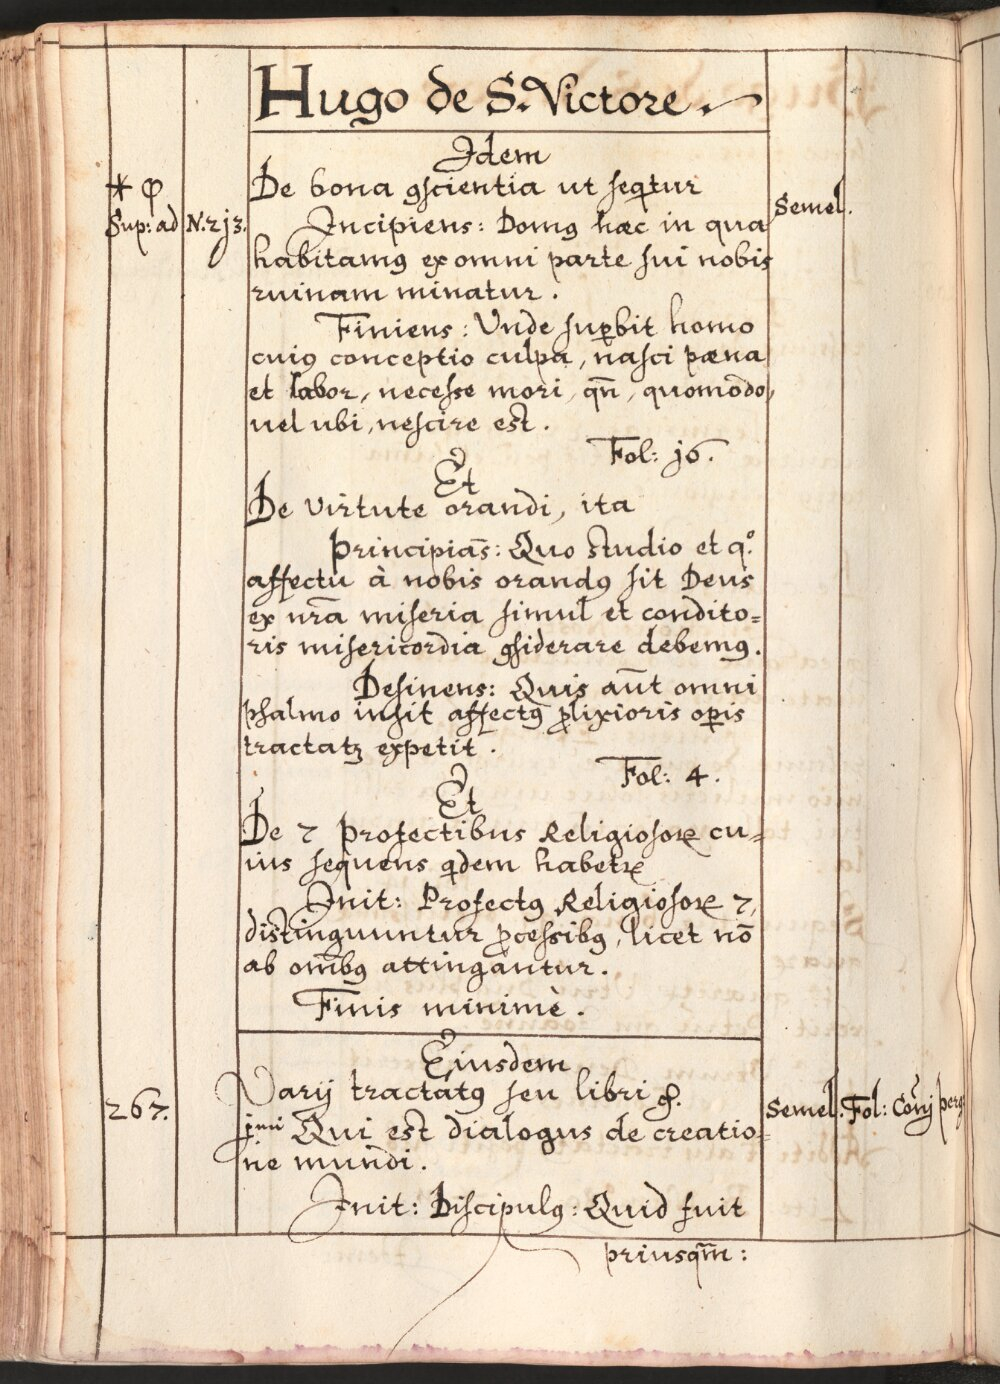 Hugo de S. Victore.
Idem
* φ
De bona ꝯscientia ut seqtur
Semel.
Sup: ad N. 2j3.
Incipiens: Domꝰ hæc in qua
habitamꝰ ex omni parte sui nobis
ruinam minatur.
Finiens: Unde suꝑbit homo
cuiꝰ conceptio culpa, nasci pæna
et labor, necesse mori, qn̄, quomodo,
uel ubi, nescire est.
Fol: j6.
Et
De virtute orandi, ita
Principiās: Quo studio et qº.
affectu à nobis orandꝰ sit Deus
ex nr̄a miseria simul et condito=
ris misericordia ꝯsiderare debemꝰ.
Desinens: Quis aūt omni
psalmo insit affectꝰ ꝓlixioris oꝑis
tractatꝫ expetit.
Fol: 4.
Et
De 7 profectibus Religiosoꝝ cu=
ius sequens qdem habetꝝ
Init: Profectꝰ Religiosoꝝ 7,
distinguuntur ꝓcessibꝰ, licet nō
ab om̄ibꝰ attingantur.
Finis minimè.
Eiusdem
267.
Varij tractatꝰ seu libri
Semel. Fol: Coīj perg
jmi Qui est dialogus de creatio=
ne mundi.
Init: Discipulꝰ: Quid fuit
priusqm̄: